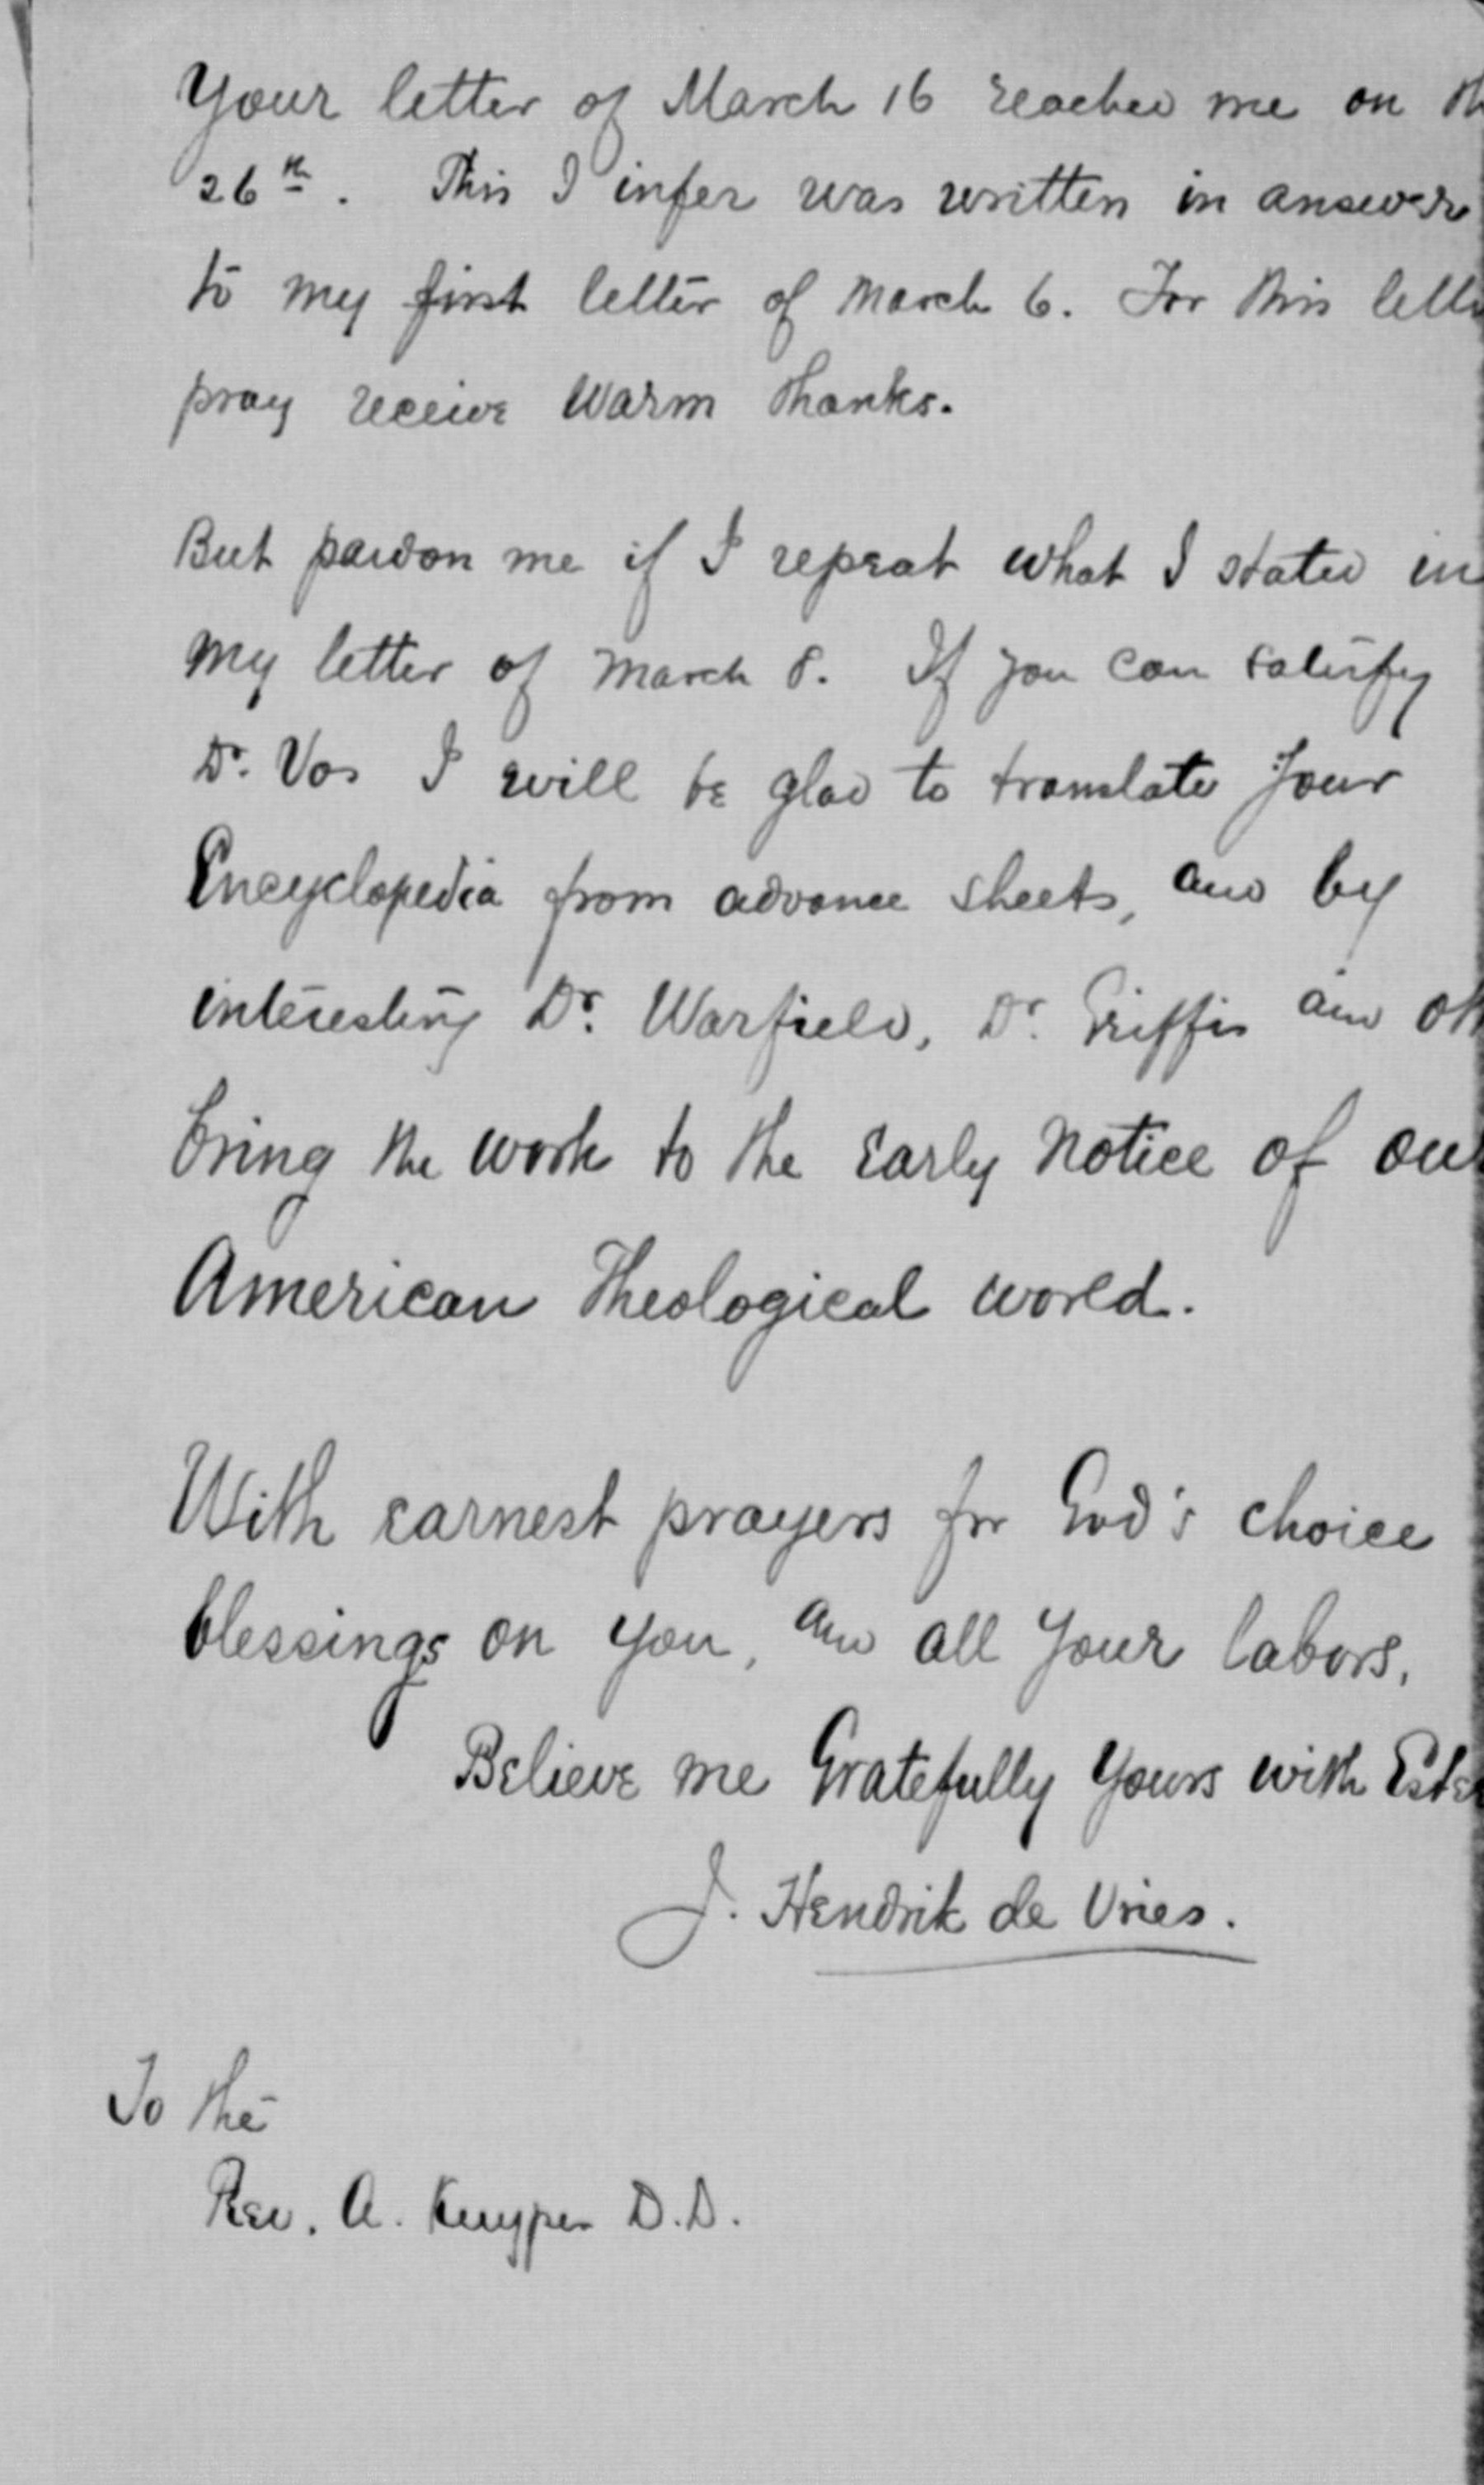 Your letter of March 16 reached me on th
26th. This I infer was written in answer
to my first letter of March 6. For this lette
pray receive warm thanks.
But pardon me if I repeat what I stated in
my letter of March 8. If you can satisfy
Dr. Vos I will be glad to translate your
Encyclopedia from advance sheets, and by
interesting Dr. Warfield, Dr. Griffis and oth
bring the work to the early notice of our
American Theological world.
With earnest prayers for God's choice
blessings on you, and all your labors,
Believe me Gratefully yours with Este
J. Hendrik de Vries.
To the
Rev. A. Kuyper D.D.